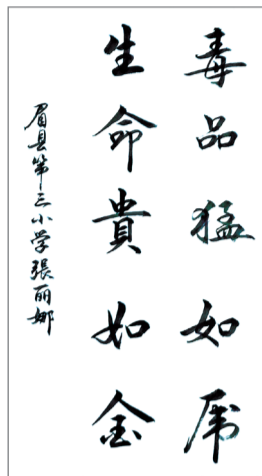 毒品猛如虎
生命貴如金
眉县第三小学張丽娜